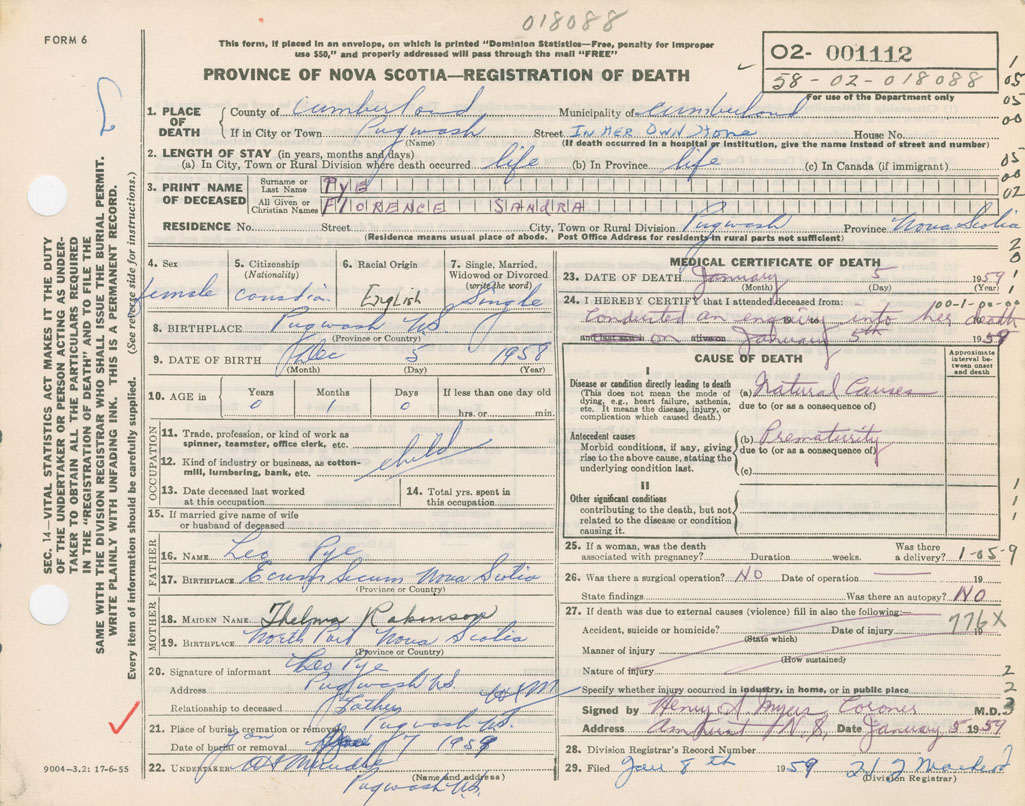 018088
FORM 6
This form, if placed in an envelope, on which is printed "Dominion Statistics—Free, penalty for improper
use $50," and properly addressed will pass through the mail "FREE"
O2- 001112
58-02-018088
For use of the Department only
PROVINCE OF NOVA SCOTIA—REGISTRATION OF DEATH
SEC. 14—VITAL STATISTICS ACT MAKES IT THE DUTY
OF THE UNDERTAKER OR PERSON ACTING AS UNDER-
TAKER TO OBTAIN ALL THE PARTICULARS REQUIRED
IN THE "REGISTRATION OF DEATH" AND TO FILE THE
SAME WITH THE DIVISION REGISTRAR WHO SHALL ISSUE THE BURIAL PERMIT.
WRITE PLAINLY WITH UNFADING INK. THIS IS A PERMANENT RECORD.
Every item of information should be carefully supplied. (See reverse side for instructions.)
1. PLACE OF DEATH
County of Cumberland Municipality of Cumberland
If in City or Town Pugwash Street IN HER OWN HOME House No.
(Name) (If death occurred in a hospital or institution, give the name instead of street and number)
2. LENGTH OF STAY (in years, months and days)
(a) In City, Town or Rural Division where death occurred life (b) In Province life (c) In Canada (if immigrant)
3. PRINT NAME OF DECEASED
Surname or Last Name PYE
All Given or Christian Names FLORENCE SANDRA
RESIDENCE No. Street City, Town or Rural Division Pugwash Province Nova Scotia
(Residence means usual place of abode. Post Office Address for residents in rural parts not sufficient)
4. Sex 5. Citizenship (Nationality) 6. Racial Origin 7. Single, Married, Widowed or Divorced (write the word)
female Canadian English Single
8. BIRTHPLACE Pugwash N.S.
(Province or Country)
9. DATE OF BIRTH Dec 5 1958
(Month) (Day) (Year)
10. AGE in Years Months Days If less than one day
0 1 0 hrs. or min.
OCCUPATION
11. Trade, profession, or kind of work as
spinner, teamster, office clerk, etc.
12. Kind of industry or business, as cotton-
mill, lumbering, bank, etc. child
13. Date deceased last worked
at this occupation
14. Total yrs. spent in
this occupation
15. If married give name of wife
or husband of deceased
FATHER
16. NAME Leo Pye
17. BIRTHPLACE Ecum Secum Nova Scotia
(Province or Country)
MOTHER
18. MAIDEN NAME Thelma Robinson
19. BIRTHPLACE North Port Nova Scotia
(Province or Country)
20. Signature of informant Leo Pye
Address Pugwash N.S.
Relationship to deceased Father
21. Place of burial, cremation or removal Pugwash N.S.
Date of burial or removal Jan 7 1959
22. UNDERTAKER
(Name and address)
Pugwash N.S.
9004—3.2: 17-6-55
MEDICAL CERTIFICATE OF DEATH
23. DATE OF DEATH January 5 1959
(Month) (Day) (Year)
24. I HEREBY CERTIFY that I attended deceased from:
Conducted an enquiry into her death
and last saw h on alive on January 5th 1959
CAUSE OF DEATH
Approximate
interval be-
tween onset
and death
I
Disease or condition directly leading to death
(This does not mean the mode of
dying, e.g., heart failure, asthenia,
etc. It means the disease, injury, or
complication which caused death.)
(a) Natural Causes
due to (or as a consequence of)
Antecedent causes
Morbid conditions, if any, giving
rise to the above cause, stating the
underlying condition last.
(b) Prematurity
due to (or as a consequence of)
(c)
II
Other significant conditions
contributing to the death, but not
related to the disease or condition
causing it.
25. If a woman, was the death
associated with pregnancy? Duration weeks. Was there a delivery? 1-05-9
26. Was there a surgical operation? NO Date of operation 19
State findings Was there an autopsy? NO
27. If death was due to external causes (violence) fill in also the following:
Accident, suicide or homicide? Date of injury 19 776X
(State which)
Manner of injury
(How sustained)
Nature of injury
Specify whether injury occurred in industry, in home, or in public place
Signed by Henry A. Myers Coroner M.D.
Address Amherst N.S. Date January 5 1959
28. Division Registrar's Record Number
29. Filed Jan 8th 1959
(Division Registrar)